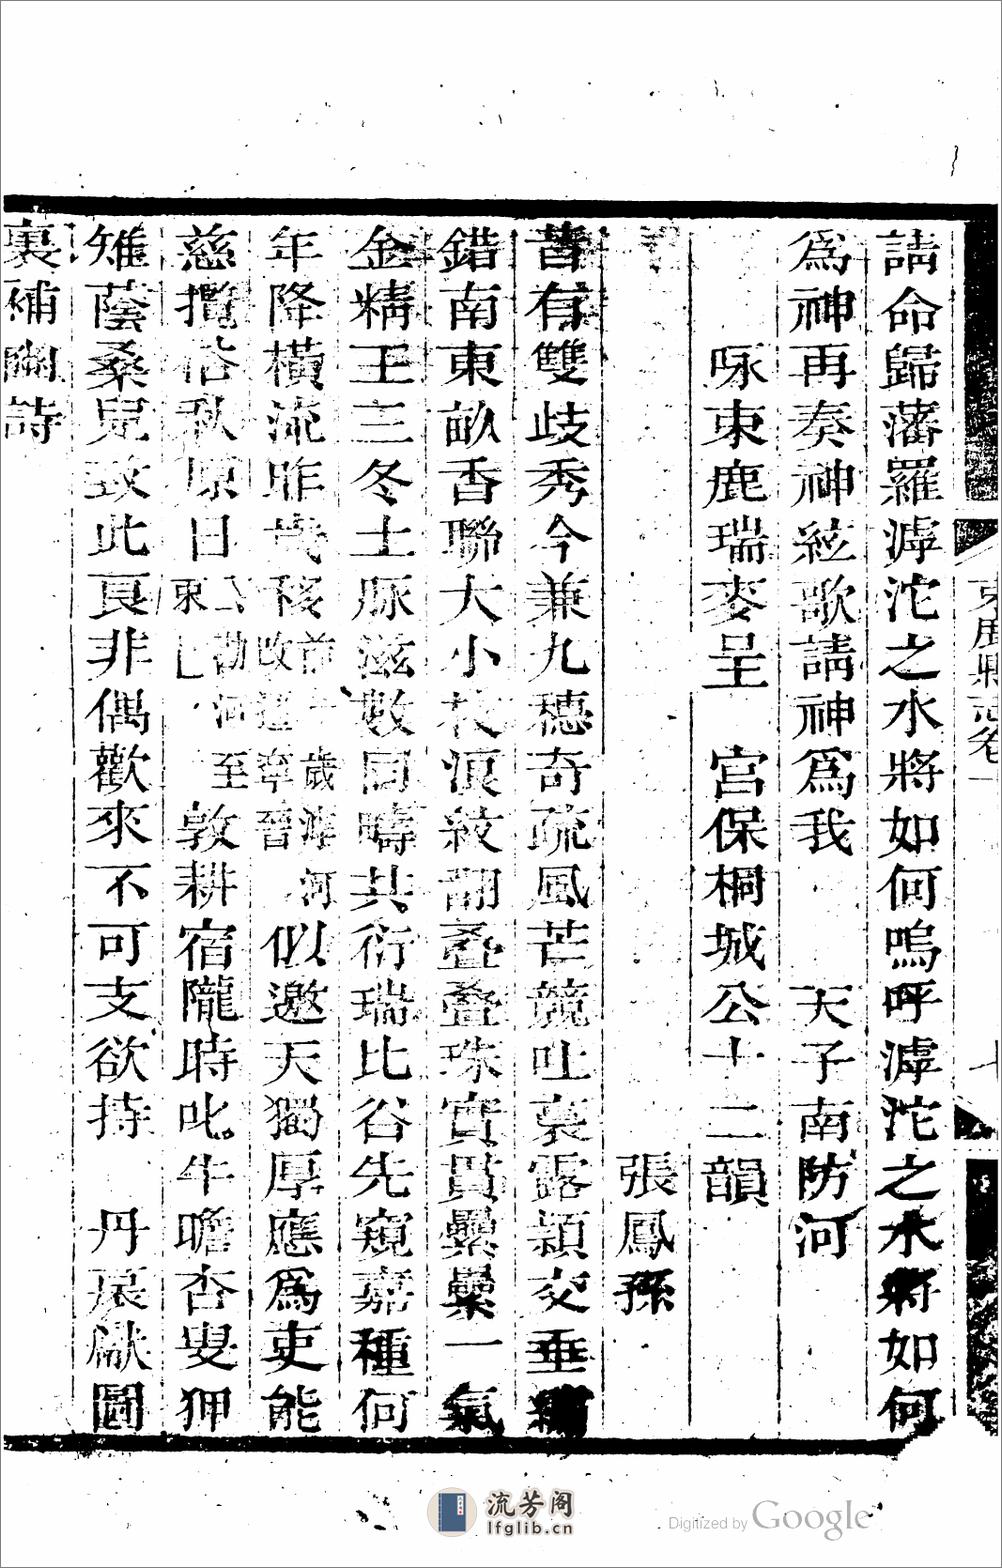 請命歸藩羅滹沱之水將如何嗚呼滹沱之水將如何
為神再奏神絃歌請神為我 天子南防河
咏束鹿瑞麥呈 宮保桐城公十二韻
張鳳孫
昔有雙歧秀今兼九穗奇疏風芒競吐裛露穎交垂
錯南東畝香聯大小枝浪紋翻疊疊珠實貫纍纍一氣
金精王三冬土脉滋數同疇共衍瑞比谷先窺嘉種何
年降橫流昨歲移 歲滹河改寧晉 似邀天獨厚應為吏能
慈攬轡秋原日 公勘河至束 敦耕宿隴時叱牛瞻杏叟狎
雉蔭桑兒致此良非偶歡來不可支欲持 丹扆獻圖
裏補豳詩
束鹿縣志卷
流芳阁
lfglib.cn
Digitized by Google